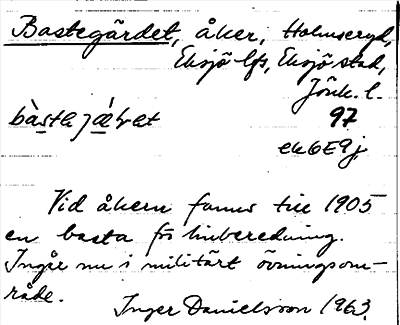 Bastegärdet, åker, Holmseryd,
Eksjö lfs, Eksjö stad,
Jönk. l.
97
ek6E9j
Vid åkern fanns till 1905
en basta för linberedning.
Ingår nu i militärt övningsom-
råde.
Inger Danielsson 1963.